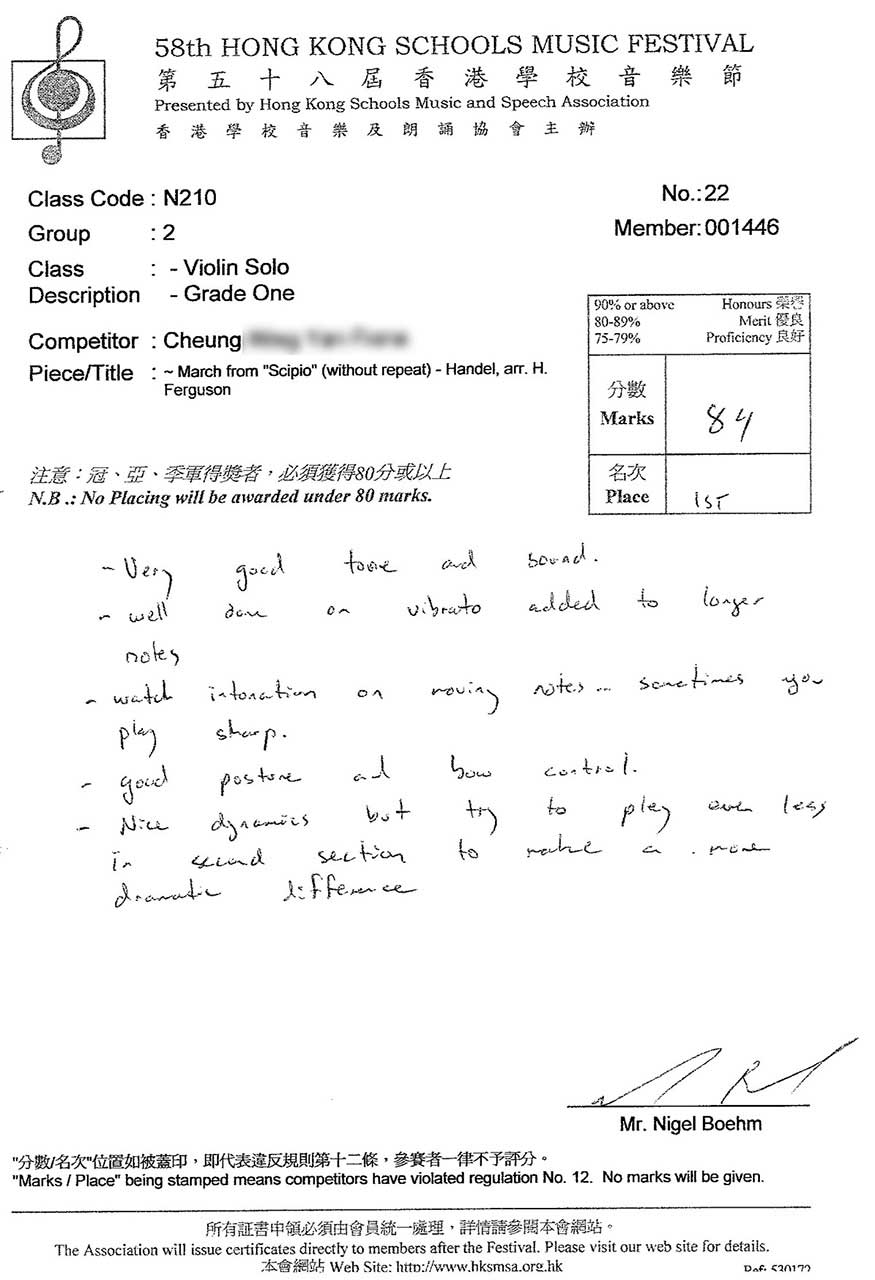 58th HONG KONG SCHOOLS MUSIC FESTIVAL
第五十八屆香港學校音樂節
Presented by Hong Kong Schools Music and Speech Association
香港學校音樂及朗誦協會主辦
Class Code : N210
No.:22
Group : 2
Member: 001446
Class : - Violin Solo
Description - Grade One
90% or above Honours 榮譽
80-89% Merit 優良
75-79% Proficiency 良好
Competitor : Cheung
Piece/Title : ~ March from "Scipio" (without repeat) - Handel, arr. H.
Ferguson
分數
Marks 84
注意：冠、亞、季軍得獎者，必須獲得80分或以上
N.B .: No Placing will be awarded under 80 marks.
名次
Place 1ST
- Very good tone and sound.
- well done on vibrato added to longer
notes
- watch intonation on moving notes... sometimes you
play sharp.
- good posture and bow control.
- Nice dynamics but try to play even less
in second section to make a more
dramatic difference
Mr. Nigel Boehm
"分數/名次"位置如被蓋印，即代表違反規則第十二條，參賽者一律不予評分。
"Marks / Place" being stamped means competitors have violated regulation No. 12. No marks will be given.
所有証書申領必須由會員統一處理，詳情請參閱本會網站。
The Association will issue certificates directly to members after the Festival. Please visit our web site for details.
本會網站 Web Site: http://www.hksmsa.org.hk
Ref: 530172